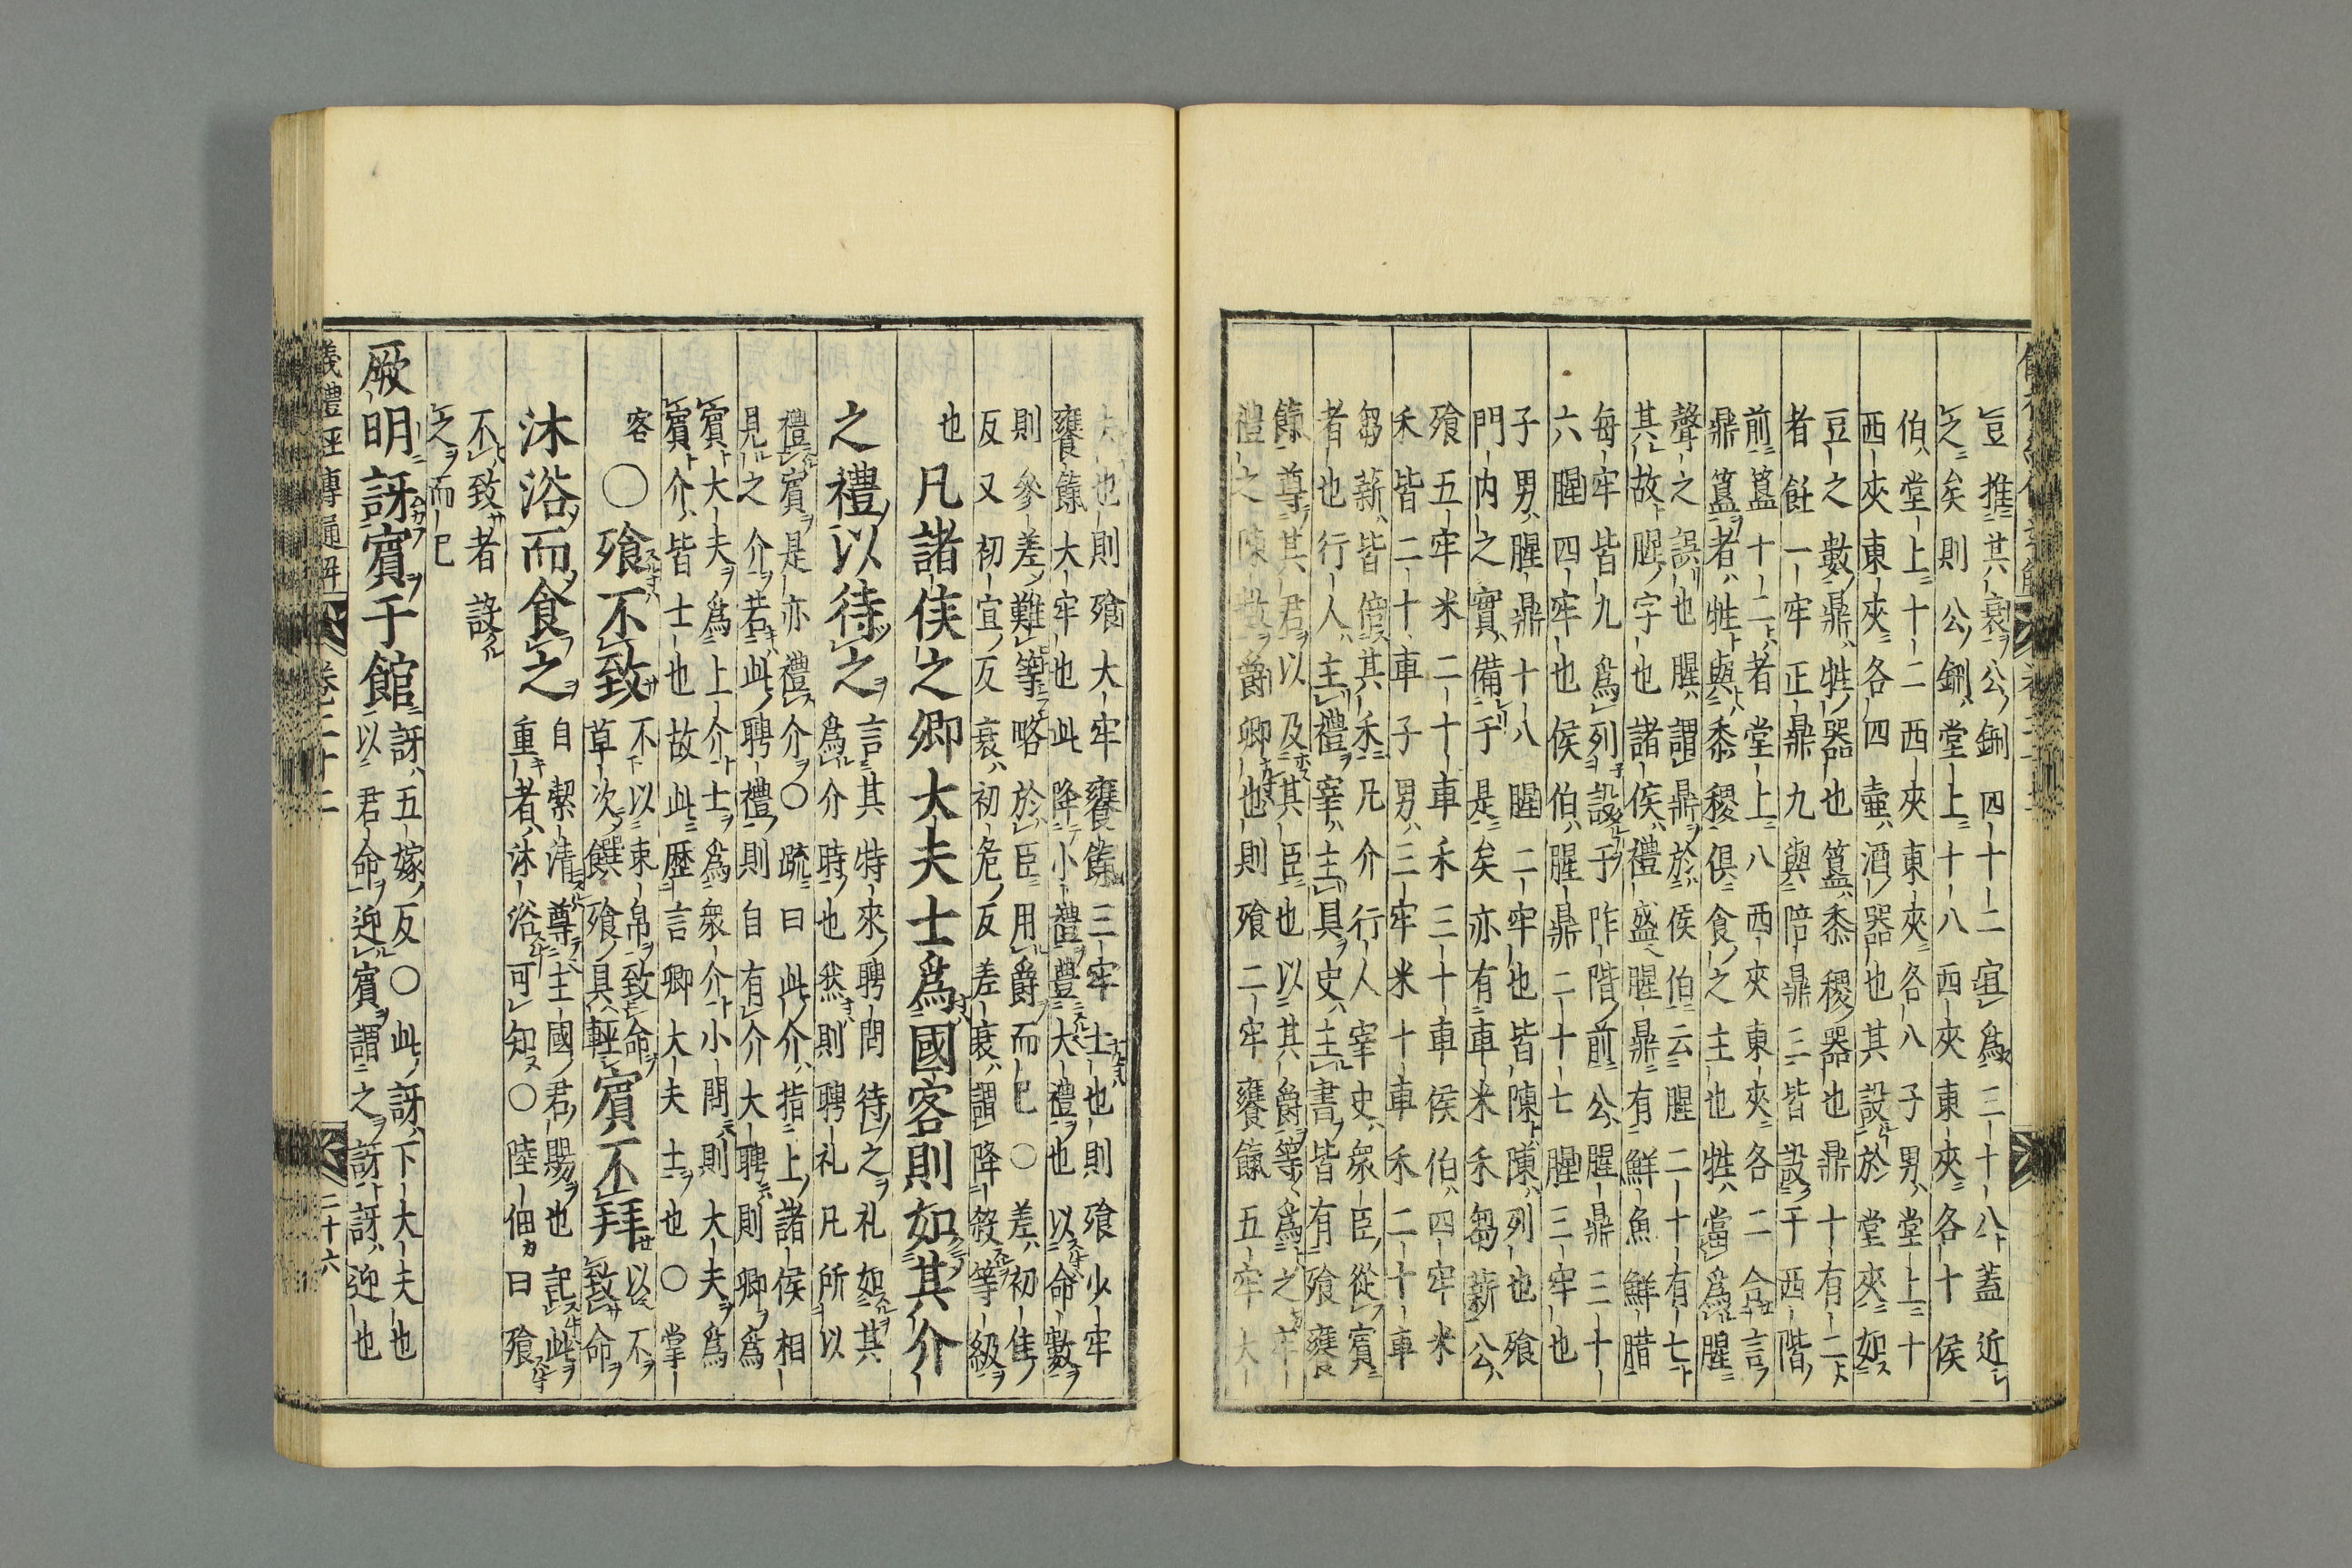 豆推其衰公鉶四十二宜爲三十八蓋近
之矣則公鉶堂上十八西夾東夾各十侯
伯堂上十二西夾東夾各八子男堂上十
西夾東夾各四壷酒器也其設於堂夾如
豆之數鼎牲器也簋黍稷器也鼎十有二
者飪一牢正鼎九與陪鼎三皆設于西階
前簋十二者堂上八西夾東夾各二合言
鼎簋者牲與黍稷俱食之主也牲當爲腥
聲之誤也腥謂鼎於侯伯云腥二十有七
其故腥字也諸侯禮盛腥鼎有鮮魚鮮腊
每牢皆九爲列設于阼階前公腥鼎三十
六腥四牢也侯伯腥鼎二十七腥三牢也
子男腥鼎十八腥二牢也皆陳陳列也飧
門内之實備于是矣亦有車米禾芻薪公
飧五牢米二十車禾三十車侯伯四牢米
禾皆二十車子男三牢米十車禾二十車
芻薪皆倍其禾凡介行人宰史衆臣從賓
者也行人主禮宰主具史主書皆有飧饔
餼尊其君以及其臣也以其爵等爲之牢
禮之陳數爵卿也則飧二牢饔餼五牢大
也則飧大牢饔餼三牢士也則飧少牢
饔餼大牢也此降小禮豊大禮也以命數
則參差難等略於臣用爵而已○差初隹
反又初宜反衰初危反差衰謂降殺等級
也
凡諸侯之卿大夫士爲國客則如其介
之禮以待之
言其特來聘問待之礼如其
爲介時也然則聘礼凡所以
禮賓是亦禮介○疏曰此介指上諸侯相
見之介若此聘禮則自有介大聘則卿爲
賓大夫爲上介士爲衆介小聘則大夫爲
賓介皆士也故此歷言卿大夫士也○掌
客
○飧不致
不以束帛致命
草次饌飧具輕
賓不拜
以不
致命
沐浴而食之
自絜清尊主國君賜也記此
重者沐浴可知○陸佃曰飧
不致者設
之而已
厥明訝賓于館
訝五嫁反○此訝下大夫也
以君命迎賓謂之訝訝迎也
儀禮經傳通解
卷二十二
二十六